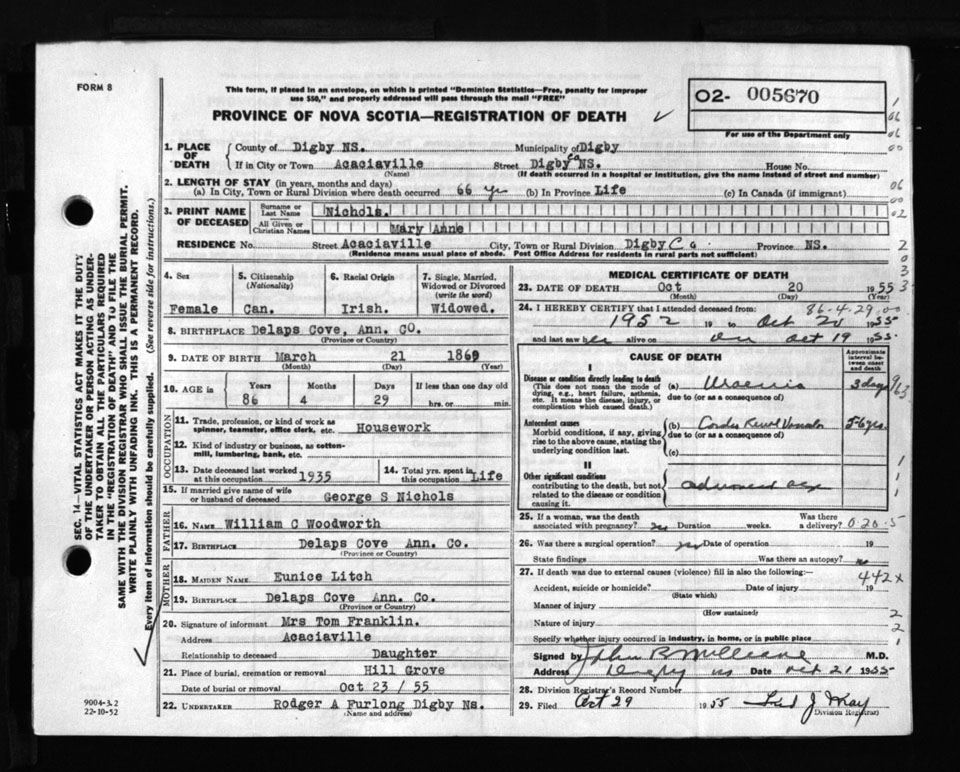 FORM 8
This form, if placed in an envelope, on which is printed "Dominion Statistics—Free, penalty for improper
use $50," and properly addressed will pass through the mail "FREE"
PROVINCE OF NOVA SCOTIA—REGISTRATION OF DEATH
02- 005670
For use of the Department only
SEC. 14—VITAL STATISTICS ACT MAKES IT THE DUTY
OF THE UNDERTAKER OR PERSON ACTING AS UNDER-
TAKER TO OBTAIN ALL THE PARTICULARS REQUIRED
IN THE "REGISTRATION OF DEATH" AND TO FILE THE
SAME WITH THE DIVISION REGISTRAR WHO SHALL ISSUE THE BURIAL PERMIT.
WRITE PLAINLY WITH UNFADING INK. THIS IS A PERMANENT RECORD.
Every item of information should be carefully supplied. (See reverse side for instructions.)
1. PLACE OF DEATH
County of Digby NS. Municipality of Digby
If in City or Town Acaciaville Street Digby Co NS. House No.
(Name) (If death occurred in a hospital or institution, give the name instead of street and number)
2. LENGTH OF STAY (in years, months and days)
(a) In City, Town or Rural Division where death occurred 66 yr (b) In Province Life (c) In Canada (if immigrant)
3. PRINT NAME OF DECEASED
Surname or Last Name Nichols.
All Given or Christian Names Mary Anne
RESIDENCE No. Street Acaciaville City, Town or Rural Division Digby Co. Province NS.
(Residence means usual place of abode. Post Office Address for residents in rural parts not sufficient)
4. Sex Female
5. Citizenship (Nationality) Can.
6. Racial Origin Irish.
7. Single, Married, Widowed or Divorced (write the word) Widowed.
8. BIRTHPLACE Delaps Cove, Ann. CO.
(Province or Country)
9. DATE OF BIRTH March 21 1869
(Month) (Day) (Year)
10. AGE in Years Months Days If less than one day old
86 4 29 hrs. or min.
OCCUPATION
11. Trade, profession, or kind of work as spinner, teamster, office clerk, etc. Housework
12. Kind of industry or business, as cotton-mill, lumbering, bank, etc.
13. Date deceased last worked at this occupation 1935
14. Total yrs. spent in this occupation Life
15. If married give name of wife or husband of deceased George S Nichols
FATHER
16. NAME William C Woodworth
17. BIRTHPLACE Delaps Cove Ann. Co.
(Province or Country)
MOTHER
18. MAIDEN NAME Eunice Litch
19. BIRTHPLACE Delaps Cove Ann. Co.
(Province or Country)
20. Signature of informant Mrs Tom Franklin.
Address Acaciaville
Relationship to deceased Daughter
21. Place of burial, cremation or removal Hill Grove
Date of burial or removal Oct 23 / 55
22. UNDERTAKER Rodger A Furlong Digby Ns.
(Name and address)
MEDICAL CERTIFICATE OF DEATH
23. DATE OF DEATH Oct 20 1955
(Month) (Day) (Year)
86-4-29.00
24. I HEREBY CERTIFY that I attended deceased from:
1952 19 to Oct 20 1955
and last saw her alive on Oct 19 1955.
CAUSE OF DEATH
Approximate interval between onset and death
I
Disease or condition directly leading to death
(This does not mean the mode of dying, e.g., heart failure, asthenia, etc. It means the disease, injury, or complication which caused death.)
(a) Uraemia 3 days
due to (or as a consequence of)
Antecedent causes
Morbid conditions, if any, giving rise to the above cause, stating the underlying condition last.
(b) Cardio Renal 5-6 yrs.
due to (or as a consequence of)
(c)
II
Other significant conditions
contributing to the death, but not related to the disease or condition causing it.
advanced age
25. If a woman, was the death associated with pregnancy? no Duration weeks. Was there a delivery?
0-20-5
26. Was there a surgical operation? no Date of operation 19
State findings Was there an autopsy? no
27. If death was due to external causes (violence) fill in also the following:—
442x
Accident, suicide or homicide? Date of injury 19
(State which)
Manner of injury
(How sustained)
Nature of injury
Specify whether injury occurred in industry, in home, or in public place
Signed by M.D.
Address Digby NS Date Oct 21 1955
28. Division Registrar's Record Number
29. Filed Oct 29 1955 Fred J May
Division Registrar
9004-3.2
22-10-52